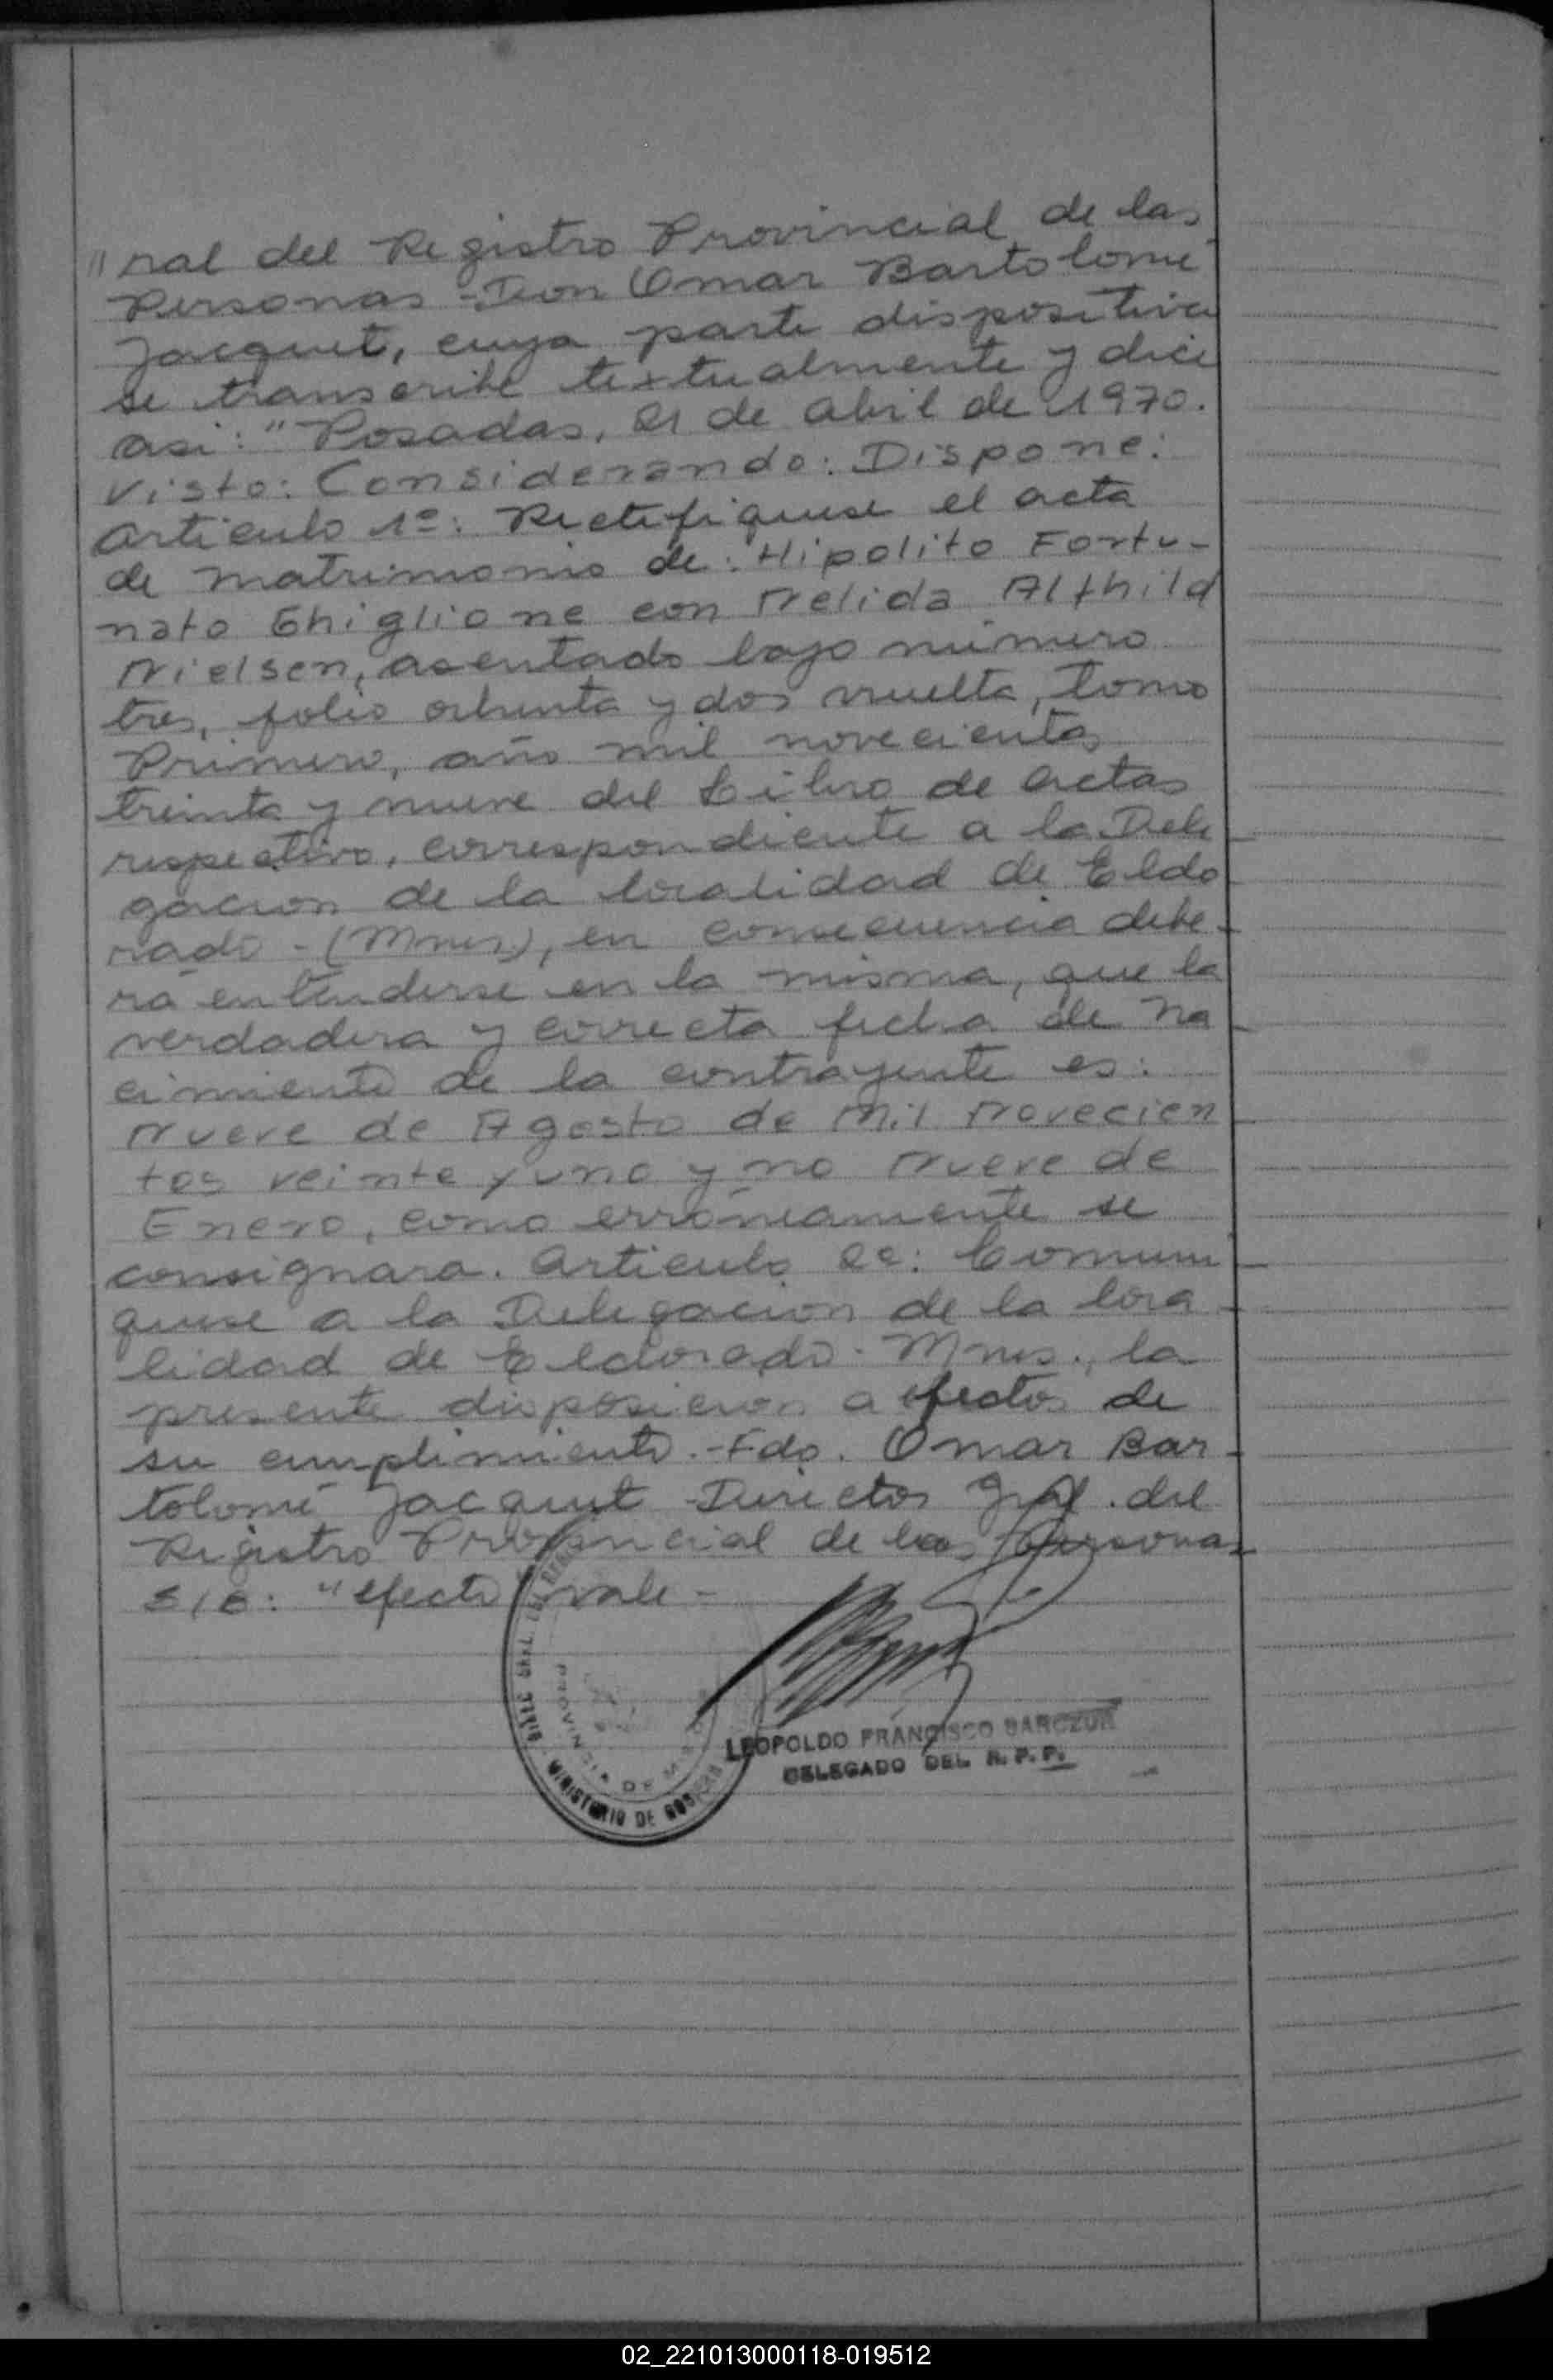 "ral del Registro Provincial de las
Personas - Don Omar Bartolomé
Jacquet, cuya parte dispositiva
se transcribe textualmente y dice
asi: "Posadas, 21 de abril de 1970.
Visto: Considerando: Dispone:
Articulo 1º: Rectifiquese el acta
de matrimonio de: Hipolito Fortu-
nato Ghiglione con Nelida Althild
Nielsen, asentado bajo número
tres, folio ochenta y dos vuelta, tomo
Primero, año mil novecientos
treinta y nueve del Libro de actas
respectivo, correspondiente a la Dele
gacion de la localidad de Eldo
rado - (Mnes), en consecuencia debe-
rá entenderse en la misma, que la
verdadera y correcta fecha de na
cimiento de la contrayente es:
Nueve de Agosto de Mil Novecien
tos veinte y uno y no Nueve de
Enero, como erróneamente se
consignara. Articulo 2º: Comuni
quese a la Delegacion de la loca
lidad de Eldorado - Mnes., la
presente disposicion a efectos de
su cumplimiento. - Fdo. Omar Bar-
tolomé Jacquet - Director Gral. del
Registro Provincial de las Personas
S/B: "efecto" vale -
PROVINCIA DE
MINISTERIO DE
LEOPOLDO FRANCISCO BARCZUK
DELEGADO DEL R. P. P.
02_221013000118-019512